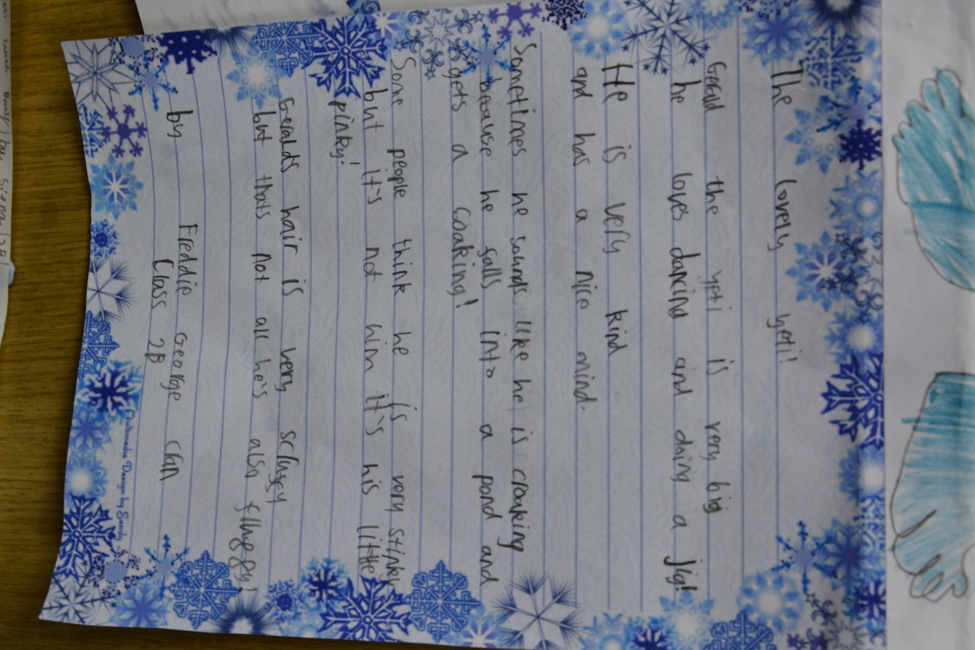 The lovely yeti!
Gerald the yeti is very big
he loves dancing and doing a jig!
He is very kind
and has a nice mind.
Sometimes he sounds like he is croaking
because he falls into a pond and
gets a soaking!
Some people think he is very stinky
but it's not him it's his little
pinky!
Gerald's hair is very scruffy
but thats not all he's also fluffy!
by Freddie George Chan
Class 2B
Multimedia Design by Sandy